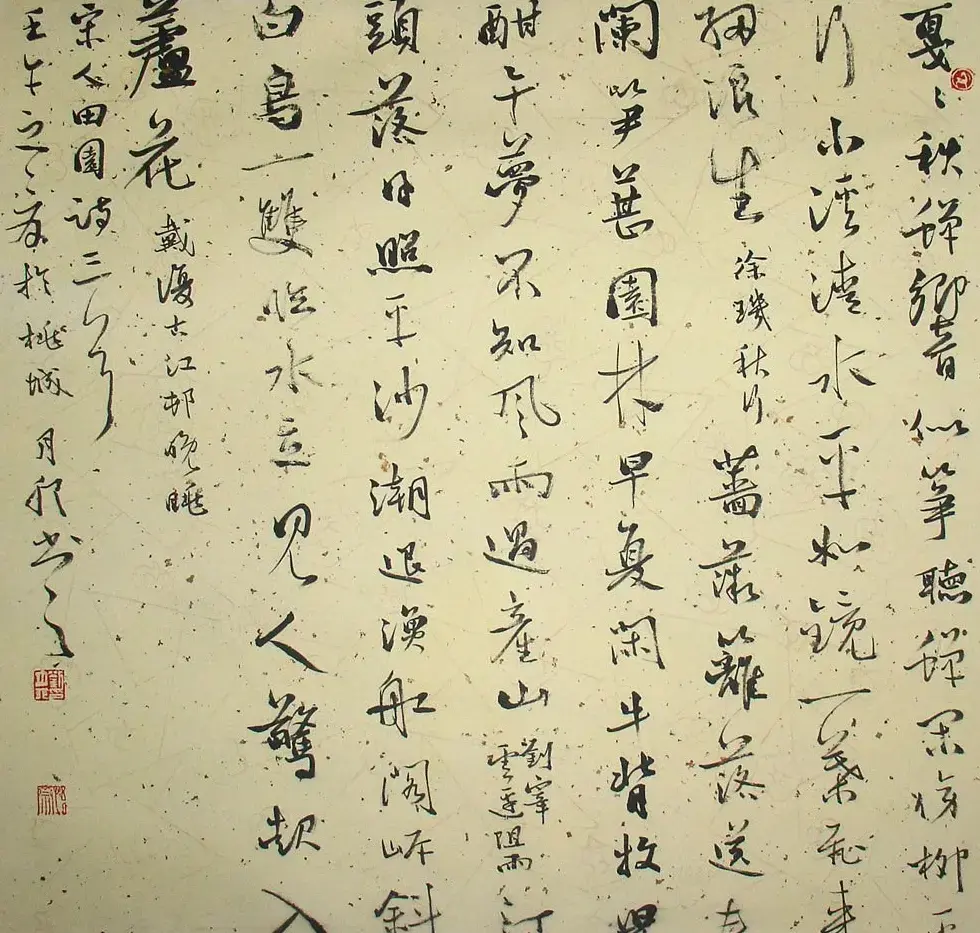 戛〻秋蟬響似箏聽蟬閑傍柳
行小溪清水平如鏡一葉飛來
細浪生 徐璣秋行 薔薇籬落送
闌笋葚園林早夏閑牛背牧
酣午夢不知風雨過山 劉宰雲邊阻雨 江
頭落日照平沙潮退漁船閣岸斜
白鳥一雙臨水立見人驚起入
蘆花 戴復古江邨晚眺
宋人田園詩三
壬午之於桃城月書